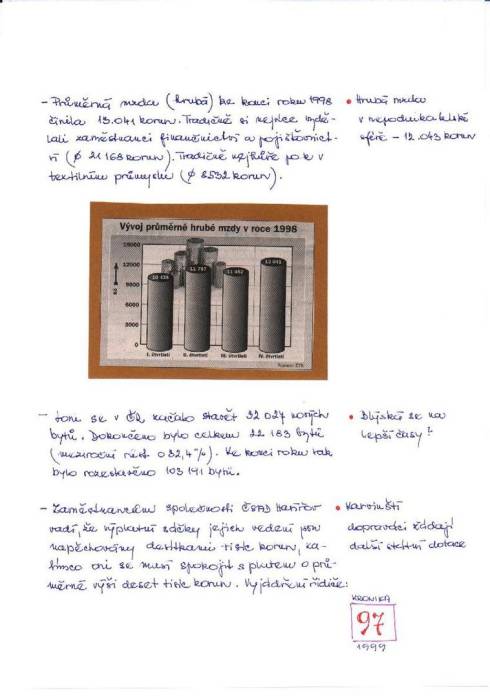 - Průměrná mzda (hrubá) ke konci roku 1998
činila 13.041 korun. Tradičně si nejvíce vydě-
lali zaměstnanci finančnictví a pojišťovnict-
ví (ø 21168 korun). Tradičně nejhůře pak v
textilním průmyslu (ø 8532 korun).
• Hrubá mzda
v nepodnikatelské
sféře - 12.043 korun
Vývoj průměrné hrubé mzdy v roce 1998
15000
12000
9000
6000
3000
0
Kč
10 434
11 797
11 052
13 041
I. čtvrtletí
II. čtvrtletí
III. čtvrtletí
IV. čtvrtletí
ČTK
- Loni se v ČR začalo stavět 32 027 nových
bytů. Dokončeno bylo celkem 22 183 bytů
(meziroční růst o 32,4 %). Ke konci roku tak
bylo rozestavěno 103 191 bytů.
• Blýská se na
lepší časy!
- Zaměstnancům společnosti ČSAD Havířov
vadí, že výplatní sáčky jejich vedení jsou
napěchovány desítkami tisíc korun, za-
tímco oni se musí spokojit s platem o prů-
měrné výši deset tisíc korun. Vyjádření řidiče:
• Karvinští
dopravci žádají
další státní dotace
KRONIKA
97
1999